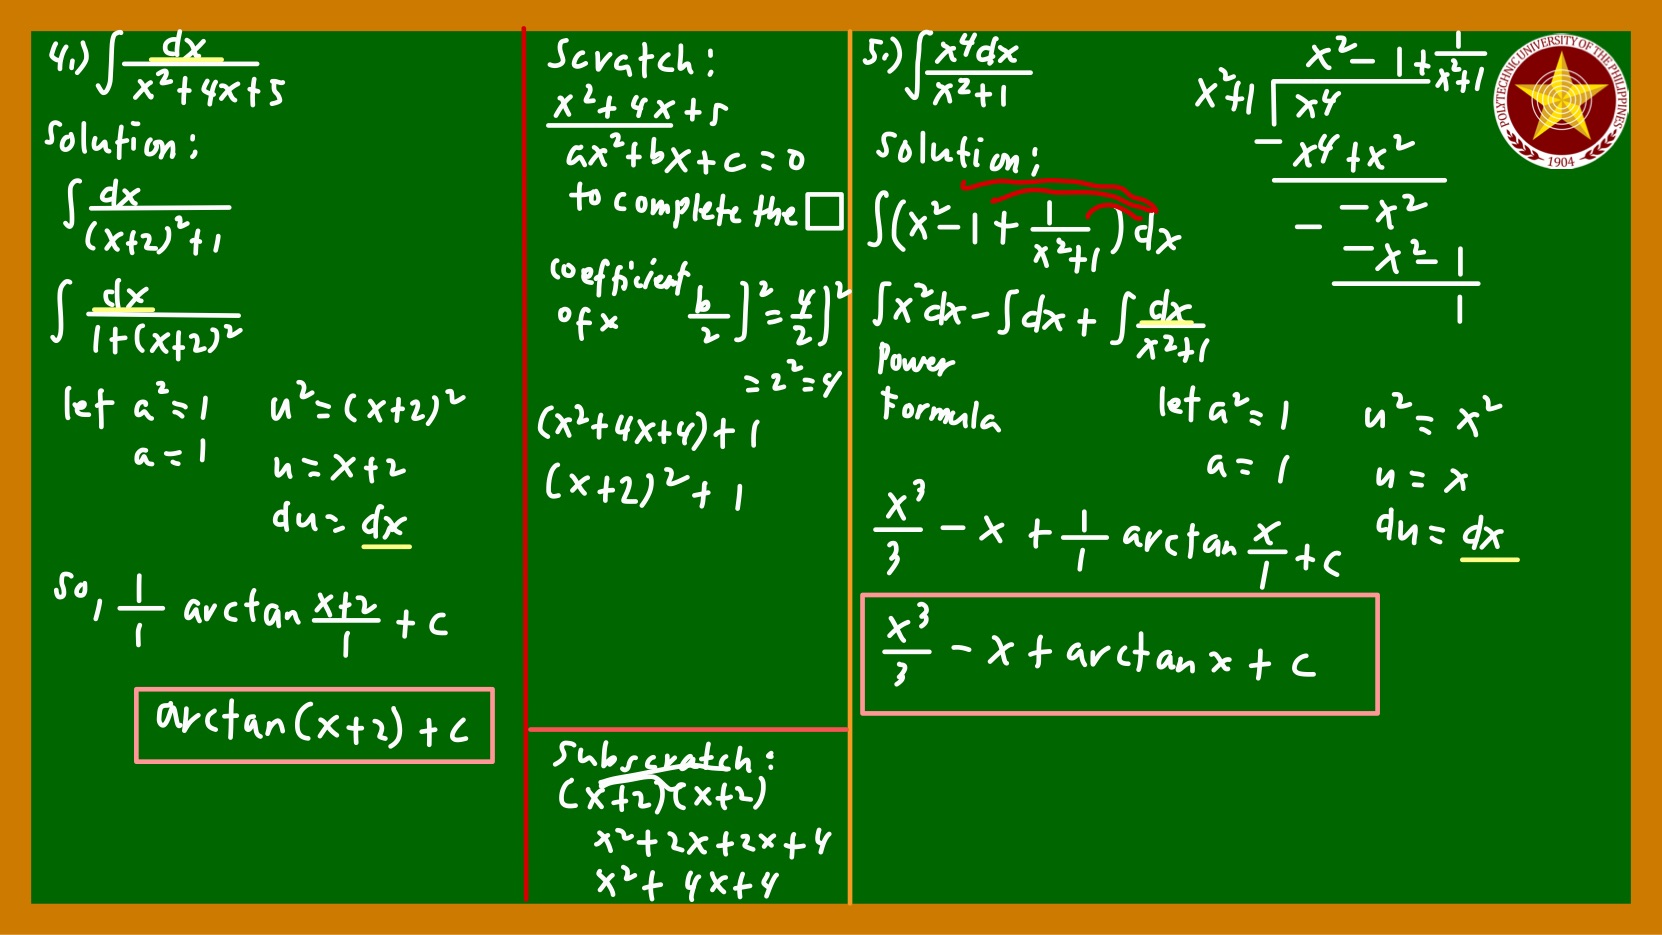 4.) ∫ dx / (x² + 4x + 5)
Solution:
∫ dx / ((x+2)² + 1)
∫ dx / (1 + (x+2)²)
let a² = 1    u² = (x+2)²
a = 1    u = x + 2
du = dx
so, 1/1 arctan (x+2)/1 + c
arctan(x+2) + c
Scratch:
x² + 4x + 5
ax² + bx + c = 0
to complete the □
coefficient
of x    b/2]² = 4/2]²
= 2² = 4
(x² + 4x + 4) + 1
(x+2)² + 1
Subscratch:
(x+2)(x+2)
x² + 2x + 2x + 4
x² + 4x + 4
5.) ∫ x⁴dx / (x² + 1)
Solution:
∫(x² - 1 + 1/(x²+1)) dx
∫x²dx - ∫dx + ∫ dx/(x²+1)
Power
Formula
let a² = 1    u² = x²
a = 1    u = x
du = dx
x³/3 - x + 1/1 arctan x/1 + c
x³/3 - x + arctan x + c
x² - 1 + 1/(x²+1)
x²+1 x⁴
- x⁴ + x²
- -x²
-x² - 1
1
POLYTECHNIC UNIVERSITY OF THE PHILIPPINES
1904